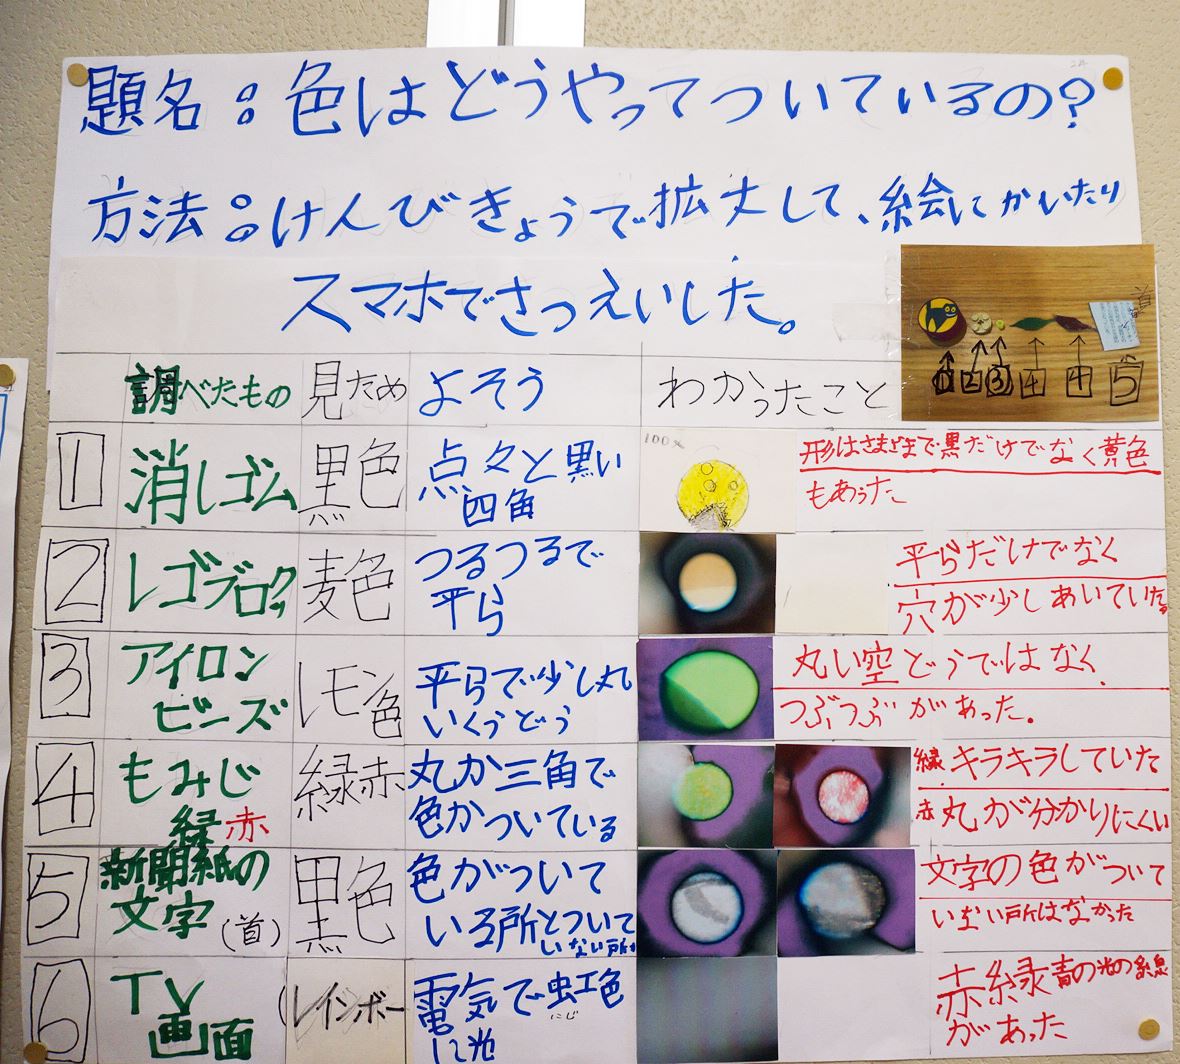 題名：色はどうやってついているの？
方法：けんびきょうで拡丈して、絵にかいたり
スマホでさつえいした。
調べたもの 見ため よそう わかったこと
1 消しゴム 黒色 点々と黒い
四角
100x
形はさまざまで黒だけでなく黄色
もあった
2 レゴブロック 麦色 つるつるで
平ら
平らだけでなく
穴が少しあいていた。
3 アイロン
ビーズ
レモン
色
平らで少し丸
いくうどう
丸い空どうではなく
つぶつぶがあった。
4 もみじ
緑 赤
緑赤
丸か三角で
色がついている
緑 キラキラしていた
赤 丸が分かりにくい
5 新聞紙の
文字(首)
黒色
色がついて
いる所とついて
いない所が
文字の色がついて
いない所はなかった
6 TV
画面
(レインボー
電気で虫工色
にじ
に光
赤緑青の光の糸泉
があった
1 2 3 4 4 5
首